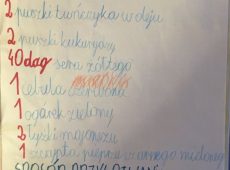 2 puszki tuńczyka w oleju
2 puszki kukurydzy
40 dag sera żółtego
1 cebula czerwona
1 ogórek zielony
2 łyżki majonezu
1 szczypta pieprzu czarnego mielonego
SPOSÓB PRZYRZĄDZANIA